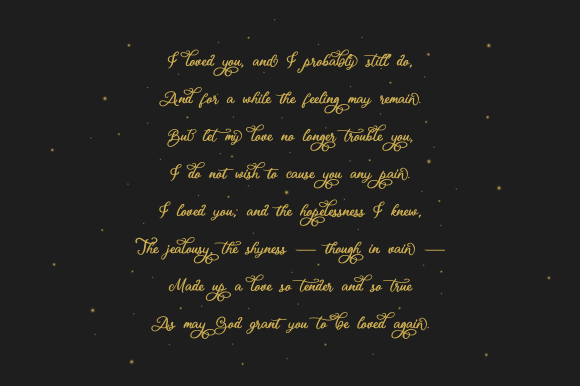 I loved you, and I probably still do,
And for a while the feeling may remain.
But let my love no longer trouble you,
I do not wish to cause you any pain.
I loved you; and the hopelessness I knew,
The jealousy, the shyness — though in vain —
Made up a love so tender and so true
As may God grant you to be loved again.